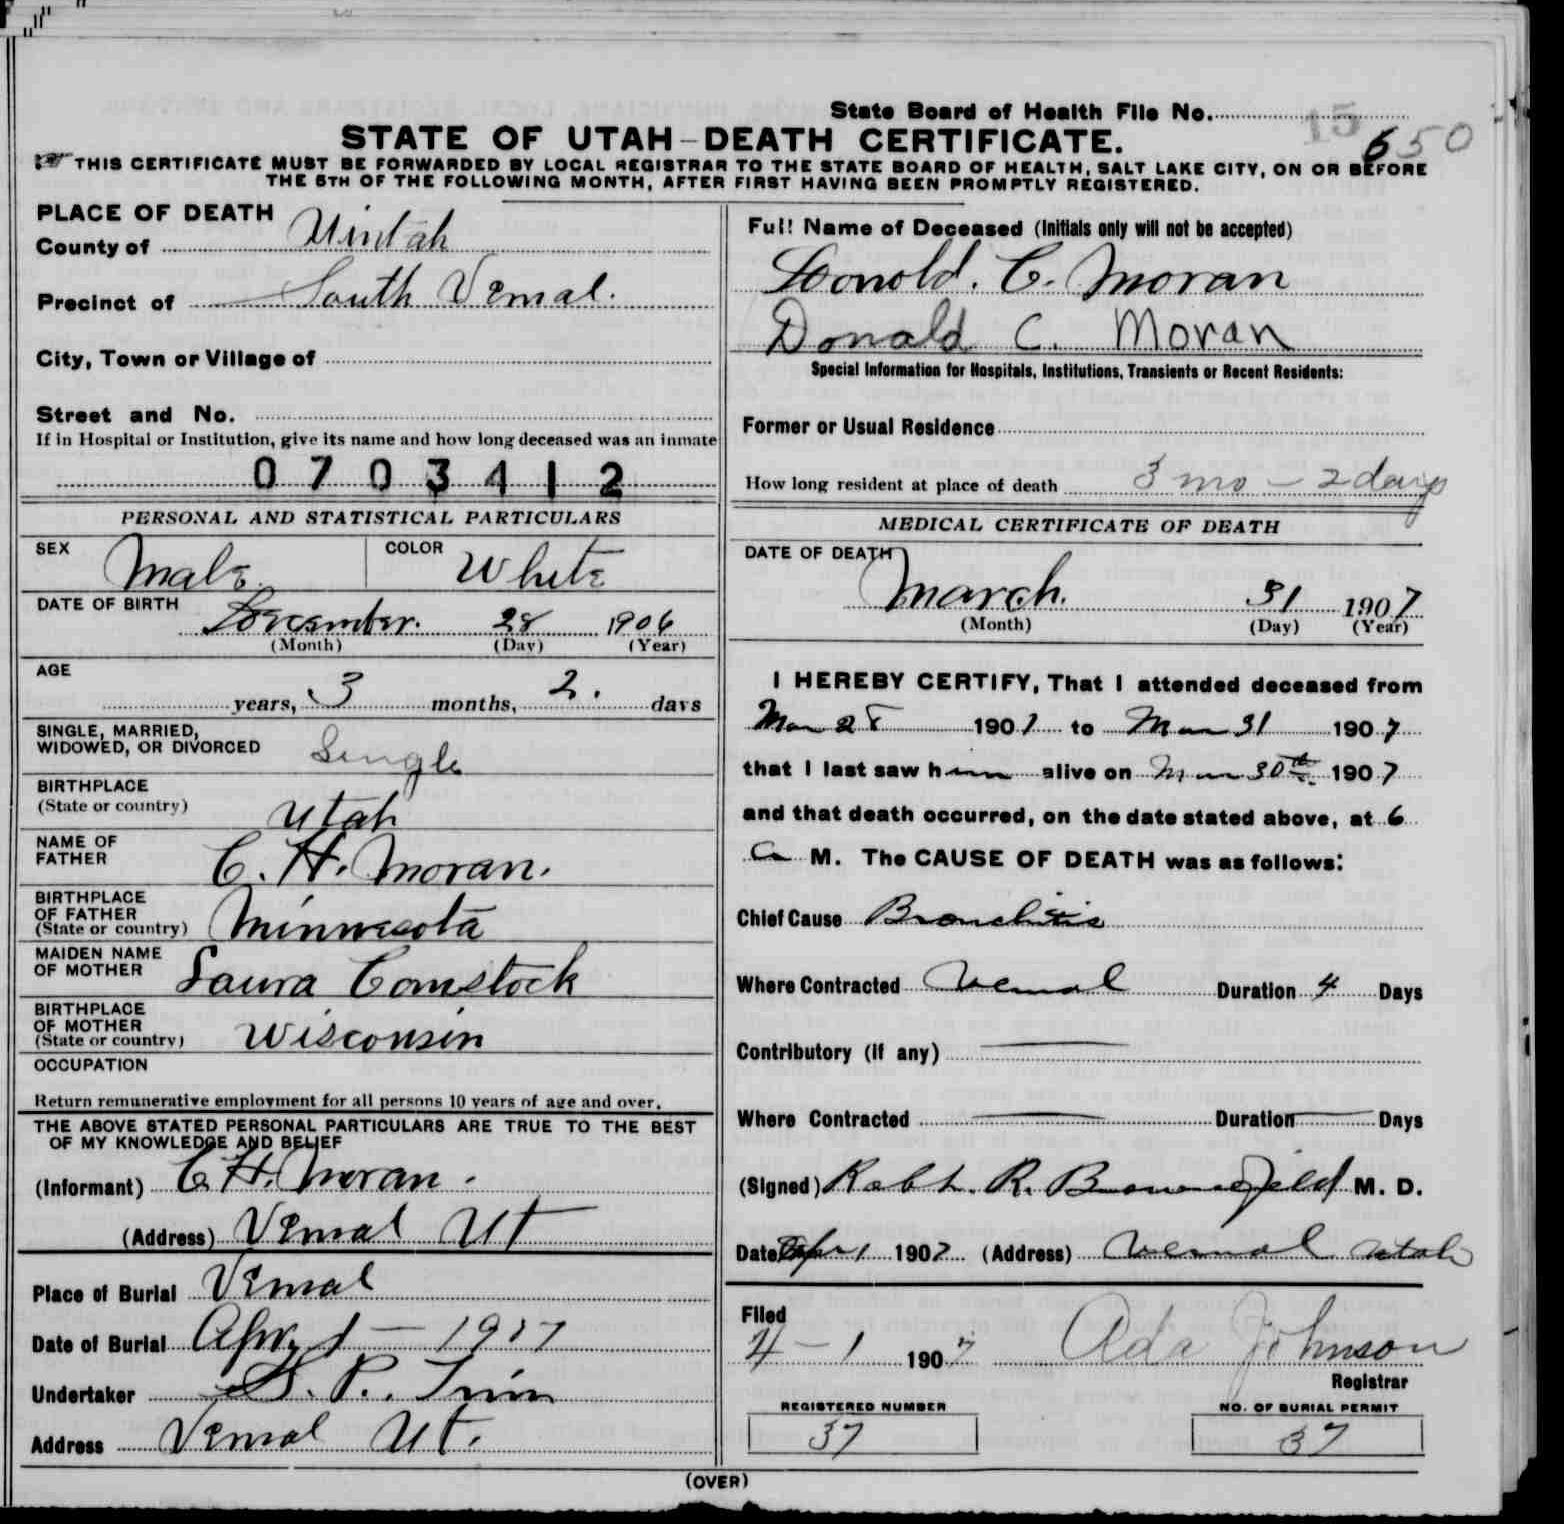 State Board of Health File No. 15
650
STATE OF UTAH–DEATH CERTIFICATE.
☞ THIS CERTIFICATE MUST BE FORWARDED BY LOCAL REGISTRAR TO THE STATE BOARD OF HEALTH, SALT LAKE CITY, ON OR BEFORE
THE 5TH OF THE FOLLOWING MONTH, AFTER FIRST HAVING BEEN PROMPTLY REGISTERED.
PLACE OF DEATH
County of Uintah
Precinct of South Vernal.
City, Town or Village of
Street and No.
If in Hospital or Institution, give its name and how long deceased was an inmate
0703412
PERSONAL AND STATISTICAL PARTICULARS
SEX Male. COLOR White
DATE OF BIRTH
December. 28 1906
(Month) (Day) (Year)
AGE
years, 3 months, 2. days
SINGLE, MARRIED,
WIDOWED, OR DIVORCED Single
BIRTHPLACE
(State or country) Utah
NAME OF
FATHER C. H. Moran.
BIRTHPLACE
OF FATHER
(State or country) Minnesota
MAIDEN NAME
OF MOTHER Laura Comstock
BIRTHPLACE
OF MOTHER
(State or country) Wisconsin
OCCUPATION
Return remunerative employment for all persons 10 years of age and over.
THE ABOVE STATED PERSONAL PARTICULARS ARE TRUE TO THE BEST
OF MY KNOWLEDGE AND BELIEF
(Informant) C. H. Moran.
(Address) Vernal Ut
Place of Burial Vernal
Date of Burial Apr. 1 – 1907
Undertaker S. P. Trim
Address Vernal Ut.
Full Name of Deceased (Initials only will not be accepted)
Donold. C. Moran
Donald C. Moran
Special Information for Hospitals, Institutions, Transients or Recent Residents:
Former or Usual Residence
How long resident at place of death 3 mo – 2 days
MEDICAL CERTIFICATE OF DEATH
DATE OF DEATH
March. 31 1907
(Month) (Day) (Year)
I HEREBY CERTIFY, That I attended deceased from
Mar 28 1907 to Mar 31 1907
that I last saw him alive on Mar 30th 1907
and that death occurred, on the date stated above, at 6
a M. The CAUSE OF DEATH was as follows:
Chief Cause Bronchitis
Where Contracted Vernal Duration 4 Days
Contributory (if any) —
Where Contracted — Duration — Days
(Signed) Robt. R. Brownfield M. D.
Date Apr 1 1907 (Address) Vernal Utah
Filed
4 – 1 1907 Ada Johnson
Registrar
REGISTERED NUMBER
37
NO. OF BURIAL PERMIT
37
(OVER)